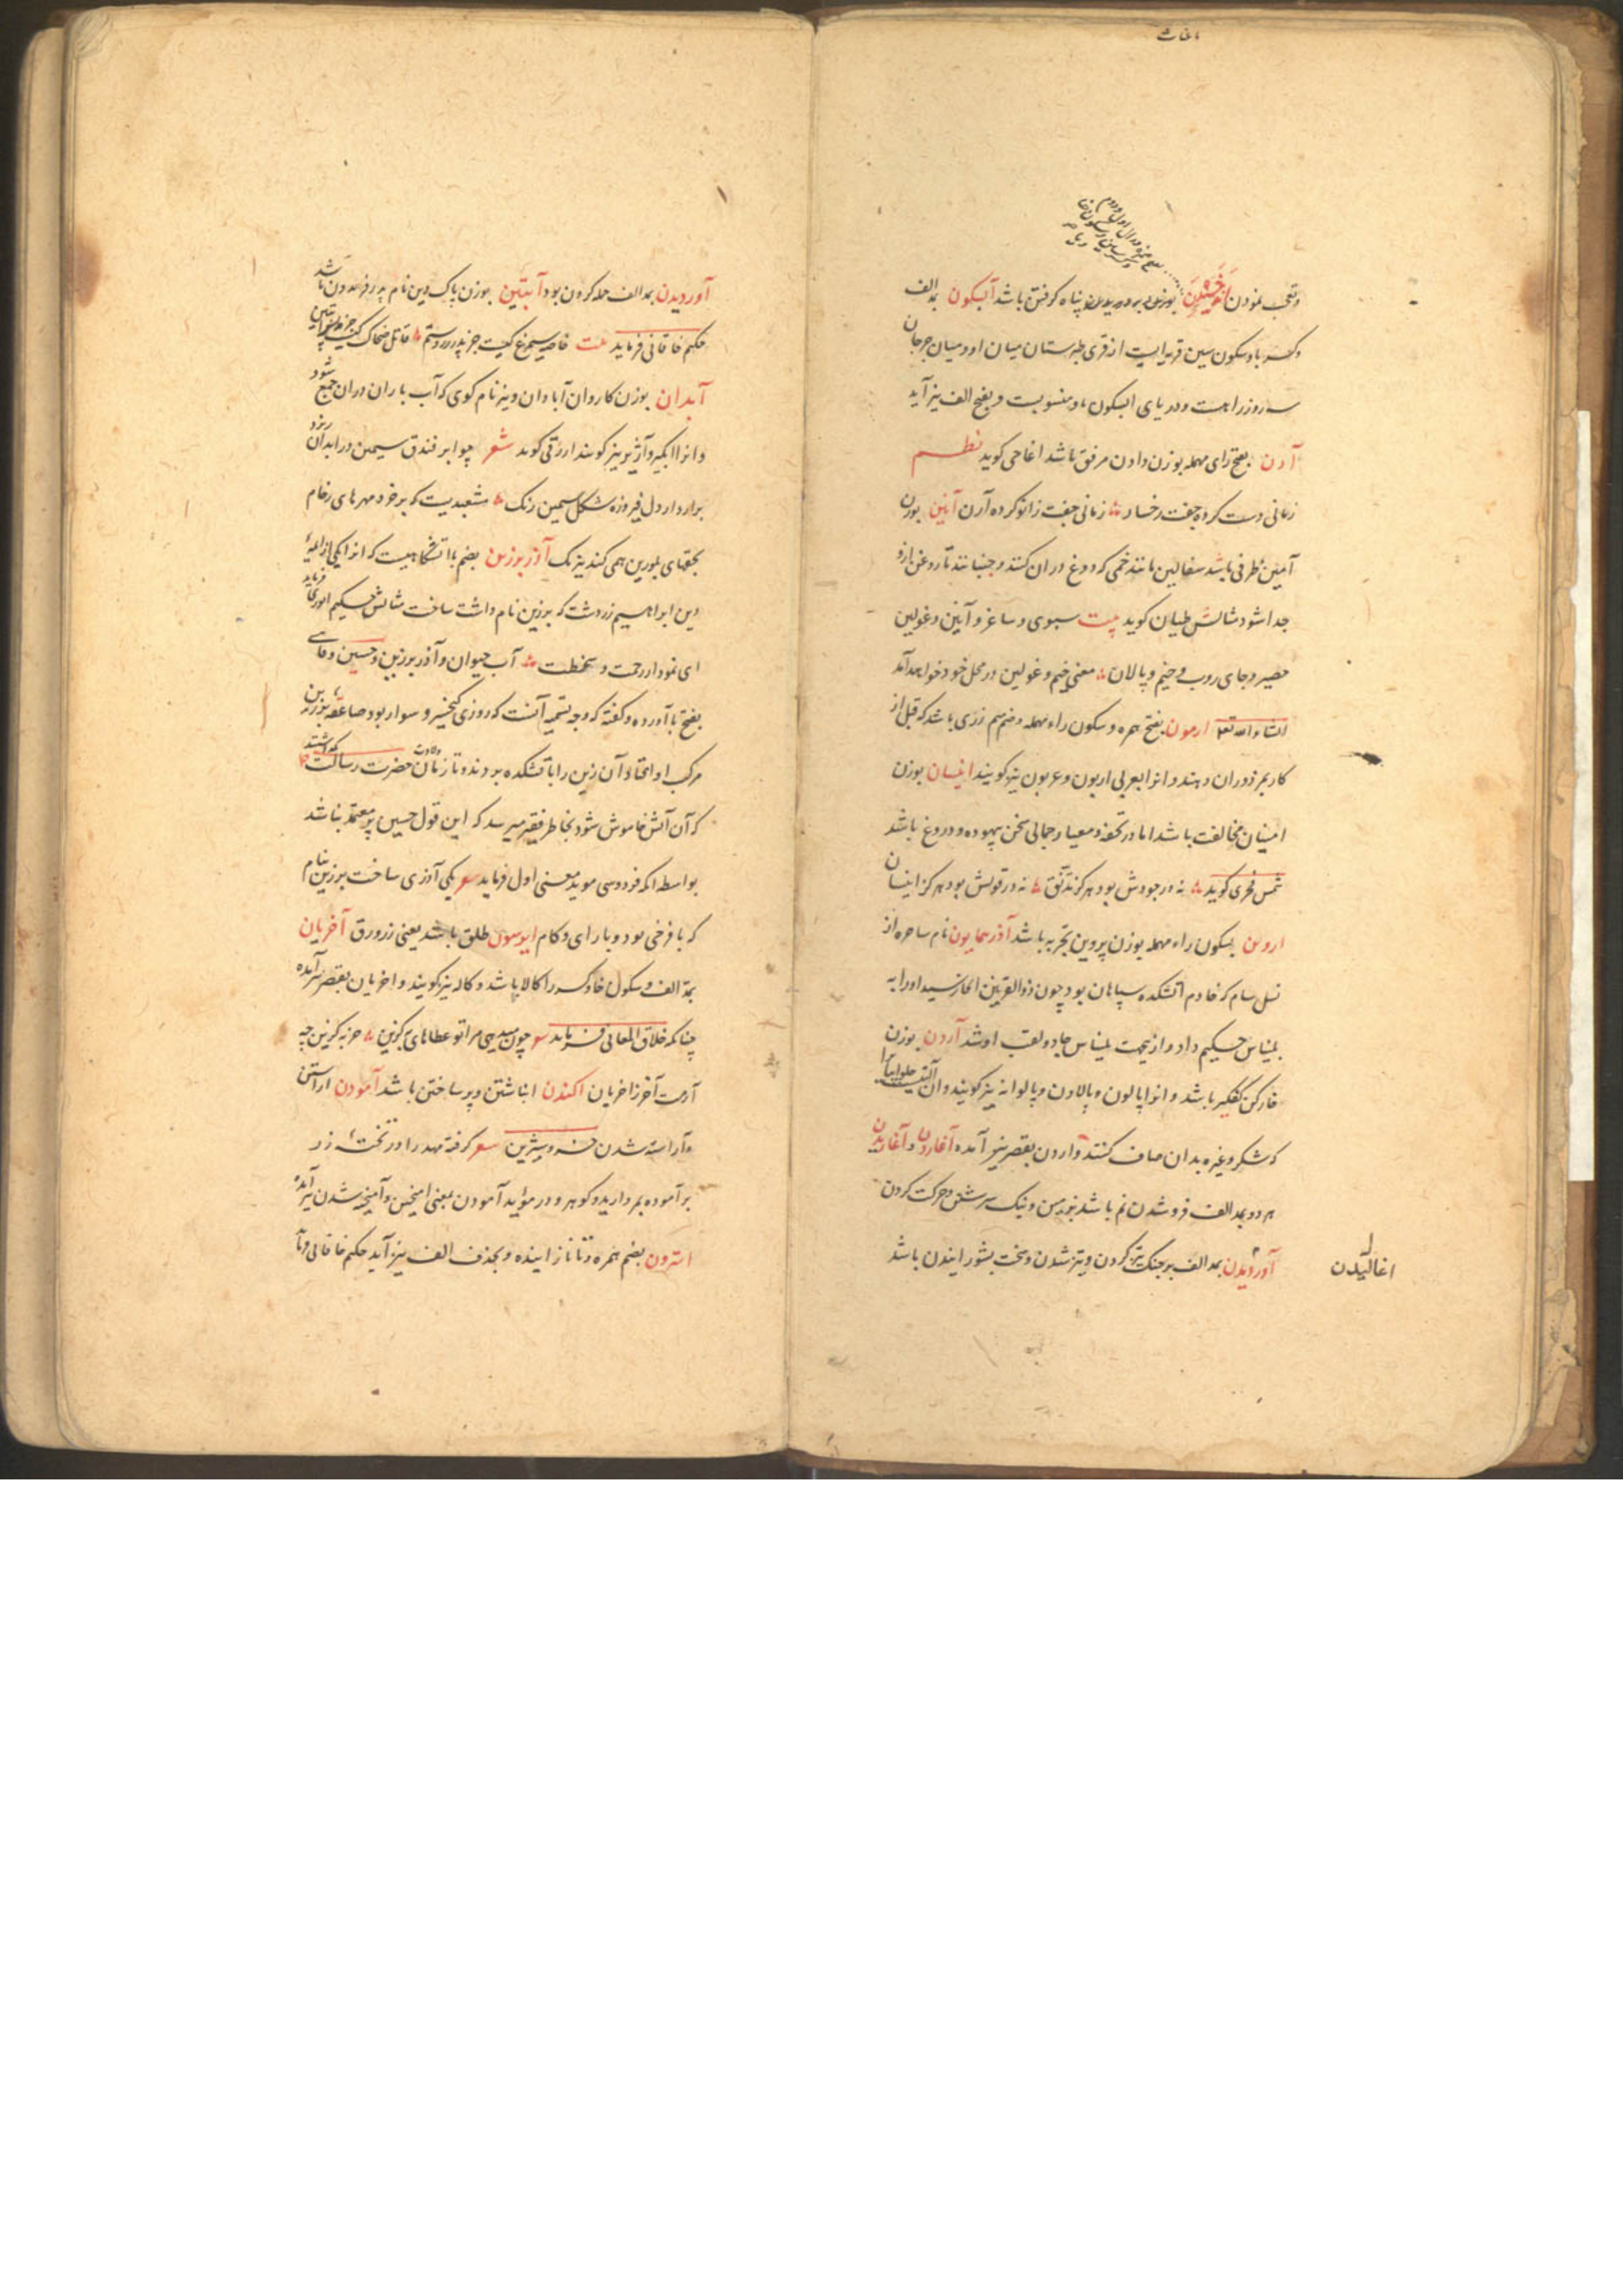 وتعجب نمودن اندخسیدن بوزن پناه کرفتن باشد آبسکون بمد الف
وکسر با وسکون سین قریه ایست از قری طبرستان میان او و میان جرجان
سه روز راهست و دریای ابسکون باو منسوبست و بفتح الف نیز آید
آرن بفتح رای مهمله بوزن دادن مرفق باشد اغاجی کوید نظم
زمانی دست کرده جفت رخسار زمانی جفت زانو کرده آرن آنین بوزن
آمین ظرفی باشد سفالین مانند خمی که دوغ در ان کنند و جنبانند تا روغن ازو
جدا شود مثالش طیان کوید بیت سبوی و ساغر و آنین و غولین
حصیر و جای روب و خیم و پالان معنی خیم و غولین در محل خود خواهد آمد
انشاء الله تعم ارمون بفتح همزه و سکون راء مهمله و ضم میم زری باشد که قبل از
کار بمزدوران دهند و انرا بعربی اربون و عربون نیز کویند انیسان بوزن
امینان مخالفت باشد اما در تحفه و معیار جمالی سخن بیهوده و دروغ باشد
شمس فخری کوید نه در جودش بود هرکز تدنق نه در قولش بود هرکز انیسان
اروین بسکون راء مهمله بوزن پروین تجربه باشد آذر همایون نام ساحره از
نسل سام که خادم اتشکده سپاهان بود چون ذوالقرنین انجا رسید او را به
بلیناس حکیم داد و ازینجهت بلیناس جادو لقب او شد آردن بوزن
خارکن کفکیر باشد و انرا پالون و پالاون و پالوانه نیز کویند و ان آلتیست حلوایانرا
که شکر و غیره بدان صاف کنند و اردن بقصر نیز آمده آغاردن و آغاریدن
هر دو بمد الف فرو شدن نم باشد بزمین و نیک سرشتن و حرکت کردن
آوردیدن بمد الف بر جنک تیز کردن و تیز شدن و سخت بشورانیدن باشد
اغالیدن
آوردیدن بمد الف حمله کردن بود آبتین بوزن پاک دین نام پدر فریدون باشد
حکیم خاقانی فرماید بیت خاصیه سیمرغ کیست جز پدر روستم قاتل ضحاک کیست جز پسر آبتین
آبدان بوزن کاروان آبادان و نیز نام کوی که آب باران دران جمع شود
و انرا ابکیر و آژیر نیز کویند ازرقی کوید شعر چو ابر فندق سیمین در ابدان ریزد
برآرد از دل فیروزه شکل سیمین رنک مشعبدیست که بر خرد مهرهای رخام
بحقهای بلورین همی کند نیرنک آذر برزین بضم با اتشکاهیست که انرا یکی از ائمهٔ
دین ابراهیم زردشت که برزین نام داشت ساخت مثالش حکیم انوری فرماید
ای نمودار رحمت و سخطت آب حیوان و آذر برزین و حسین وفائی
بفتح با آورده و کفته که وجه تسمیه آنست که روزی کیخسرو سوار بود صاعقه بر زین
مرکب او افتاد آن زین را باتشکده بودند و تا زمان ولادت حضرت رسالت نکذاشتند
که آن آتش خاموش شود بخاطر فقیر میرسد که این قول حسین پر معتمد نباشد
بواسطه انکه فردوسی موید معنی اول فرماید شعر یکی آذری ساخت برزین بنام
که با فرخی بود و با رای و کام ابرسون طلق باشد یعنی زرورق آخریان
بمد الف و سکون خا و کسر را کالا باشد و کاله نیز کویند و اخریان بقصر نیز آمده
چنانکه خلاق المعانی فرماید شعر
آرمت آخر ز اخریان اکندن انباشتن و پر ساختن باشد آمودن اراستن
و آراسته شدن خسرو شیرین شعر کرفته مهد را در تخته زر
برآموده بمروارید و کوهر و در موٴید آمودن بمعنی امیختن و آمیخته شدن نیز آمده
استرون بضم همزه و تا نازاینده و بحذف الف نیز آید حکیم خاقانی